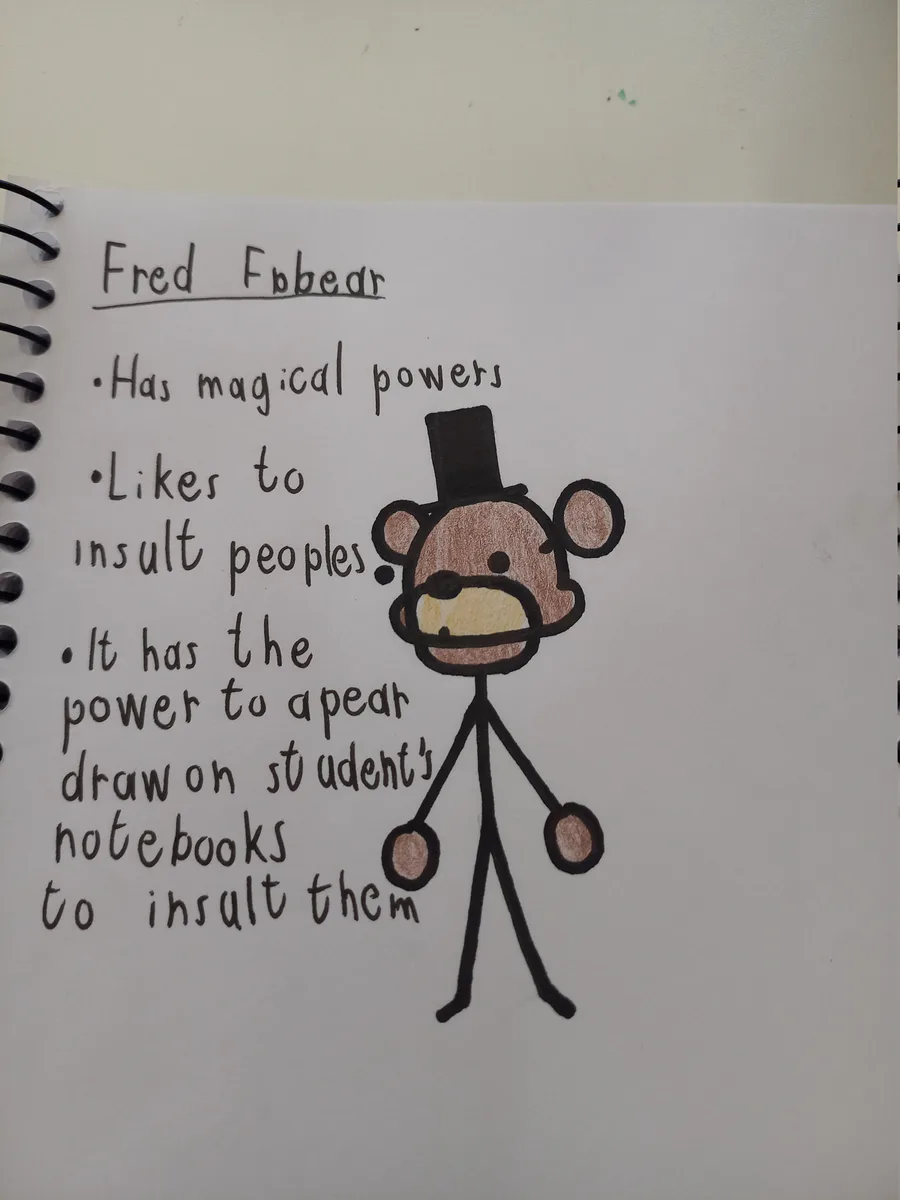 Fred Fbbear
•Has magical powers
•Likes to
insult peoples
•It has the
power to apear
draw on student's
notebooks
to insult them